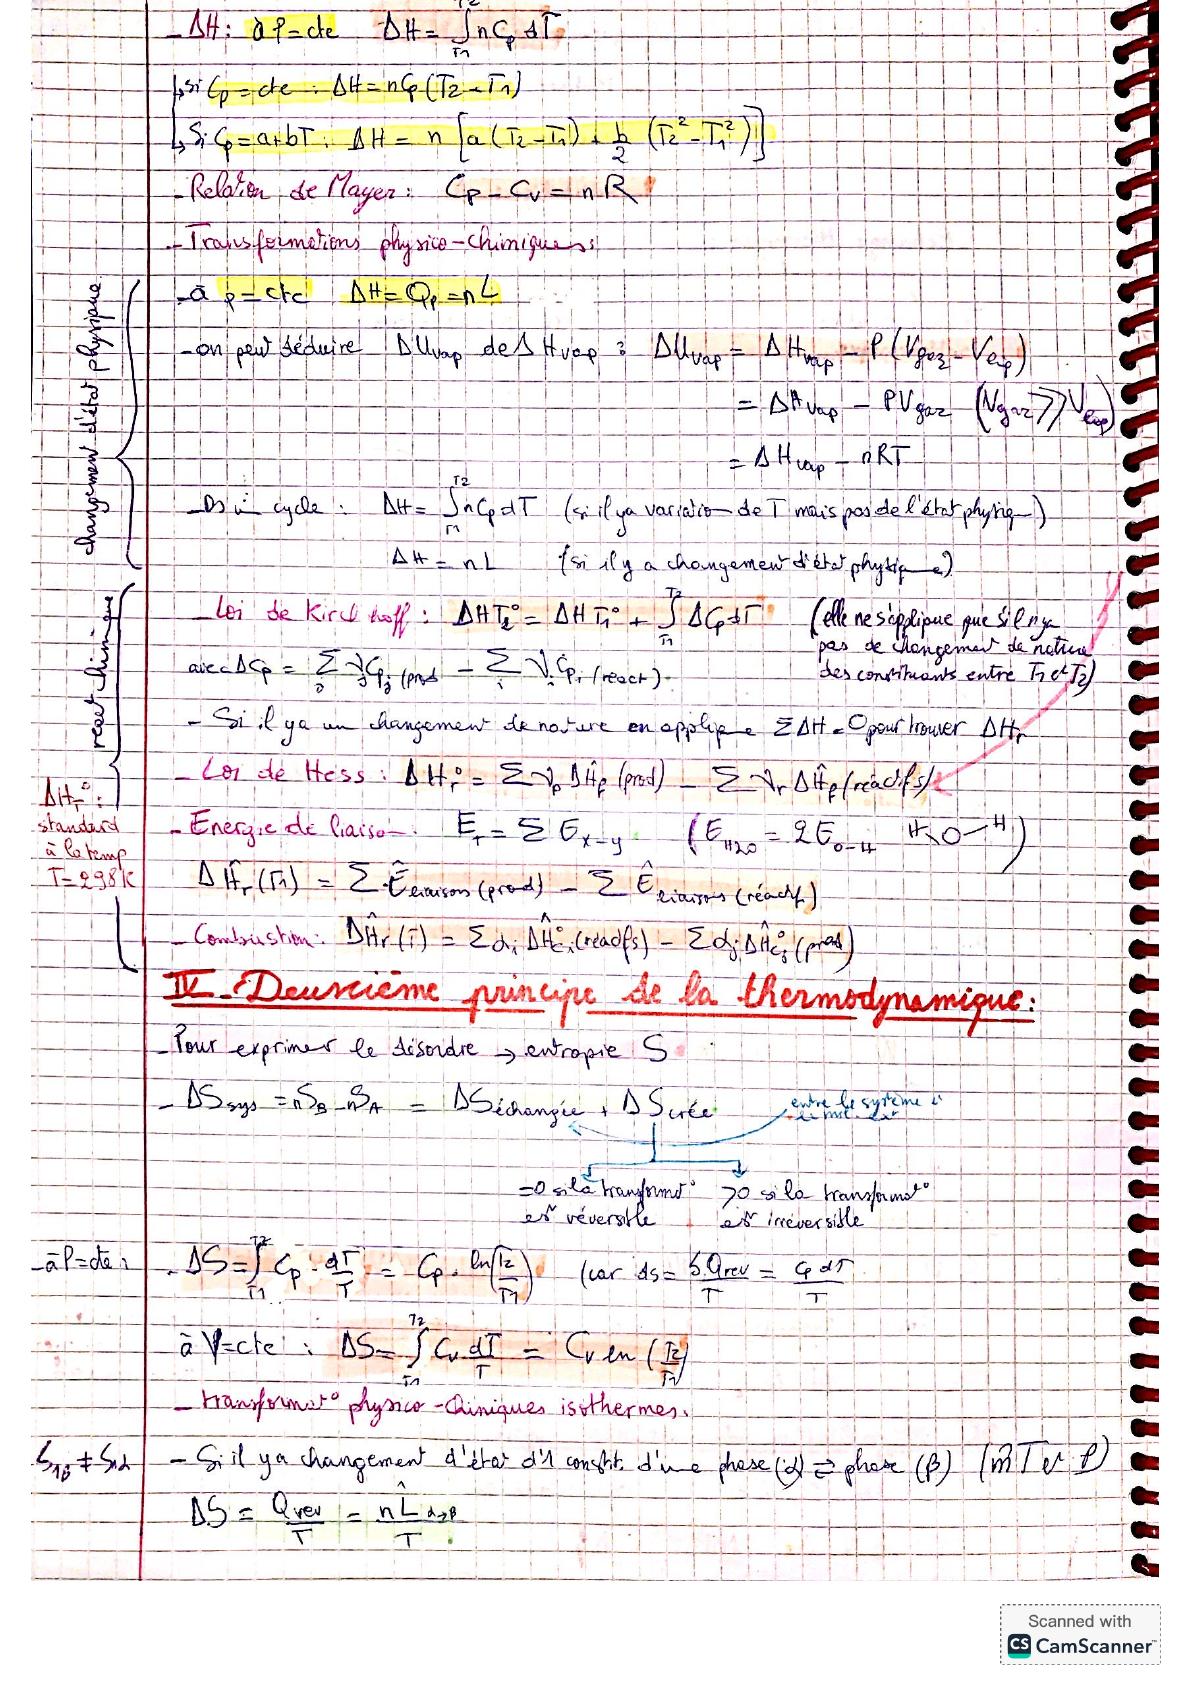 - ΔH : à P=cte ΔH = ∫T1→T2 nCp dT
↳ si Cp = cte : ΔH = nCp(T2-T1)
↳ Si Cp = a+bT : ΔH = n [a(T2-T1) + b/2 (T2² - T1²)]
- Relation de Mayer : Cp - Cv = nR
- Transformations physico-chimiques :
changement d'état physique
- à p = cte ΔH = Qp = nL
- on peut déduire ΔUvap de ΔHvap : ΔUvap = ΔHvap - P(Vgaz - Veq)
= ΔHvap - PVgaz (Vgaz >> Veq)
= ΔHvap - nRT
- Ds 1 cycle : ΔH = ∫T1→T2 nCp dT (si il ya variation de T mais pas de l'état physique)
ΔH = nL (si il y a changement d'état physique)
react chimique
- Loi de Kirchhoff : ΔHT2° = ΔHT1° + ∫T1→T2 ΔCp dT (elle ne s'applique que s'il n'ya
pas de changement de nature
des constituants entre T1 et T2)
avec ΔCp = Σj νj Cpj (prod) - Σi νi Cpi (react).
- Si il ya un changement de nature on applique ΣΔH = 0 pour trouver ΔHr
- Loi de Hess : ΔHr° = Σνp ΔĤf (prod) - Σ νr ΔĤf (réactifs)
ΔHr° :
standard
à la temp
T = 298K
- Energie de liaison : Er = Σ Ex-y (EH2O = 2EO-H H\O-H)
ΔĤr (T1) = Σ Êliaisons (prod) - Σ Êliaisons (réactf)
- Combustion : ΔĤr (T) = Σαi ΔĤ°ci (réactifs) - Σαj ΔĤ°cj (prod)
IV - Deuxième principe de la thermodynamique :
- Pour exprimer le désordre → entropie S
- ΔSsys = nSB - nSA = ΔSéchangée + ΔScrée
entre le système
= 0 si la transformat° est réversible
> 0 si la transformat° est irréversible
- à P = cte : . ΔS = ∫T1→T2 Cp . dT/T = Cp . ln(T2/T1) (car ds = δQrev/T = Cp dT/T
à V = cte : ΔS = ∫T1→T2 Cv dT/T = Cv ln (T2/T1)
- transformat° physico-chimiques isothermes.
S1β ≠ S1α - Si il ya changement d'état d'1 constit. d'une phase (α) ⇌ phase (β) (m̂ T et P)
ΔS = Qrev/T = nL̂α→β/T
Scanned with
CS CamScanner